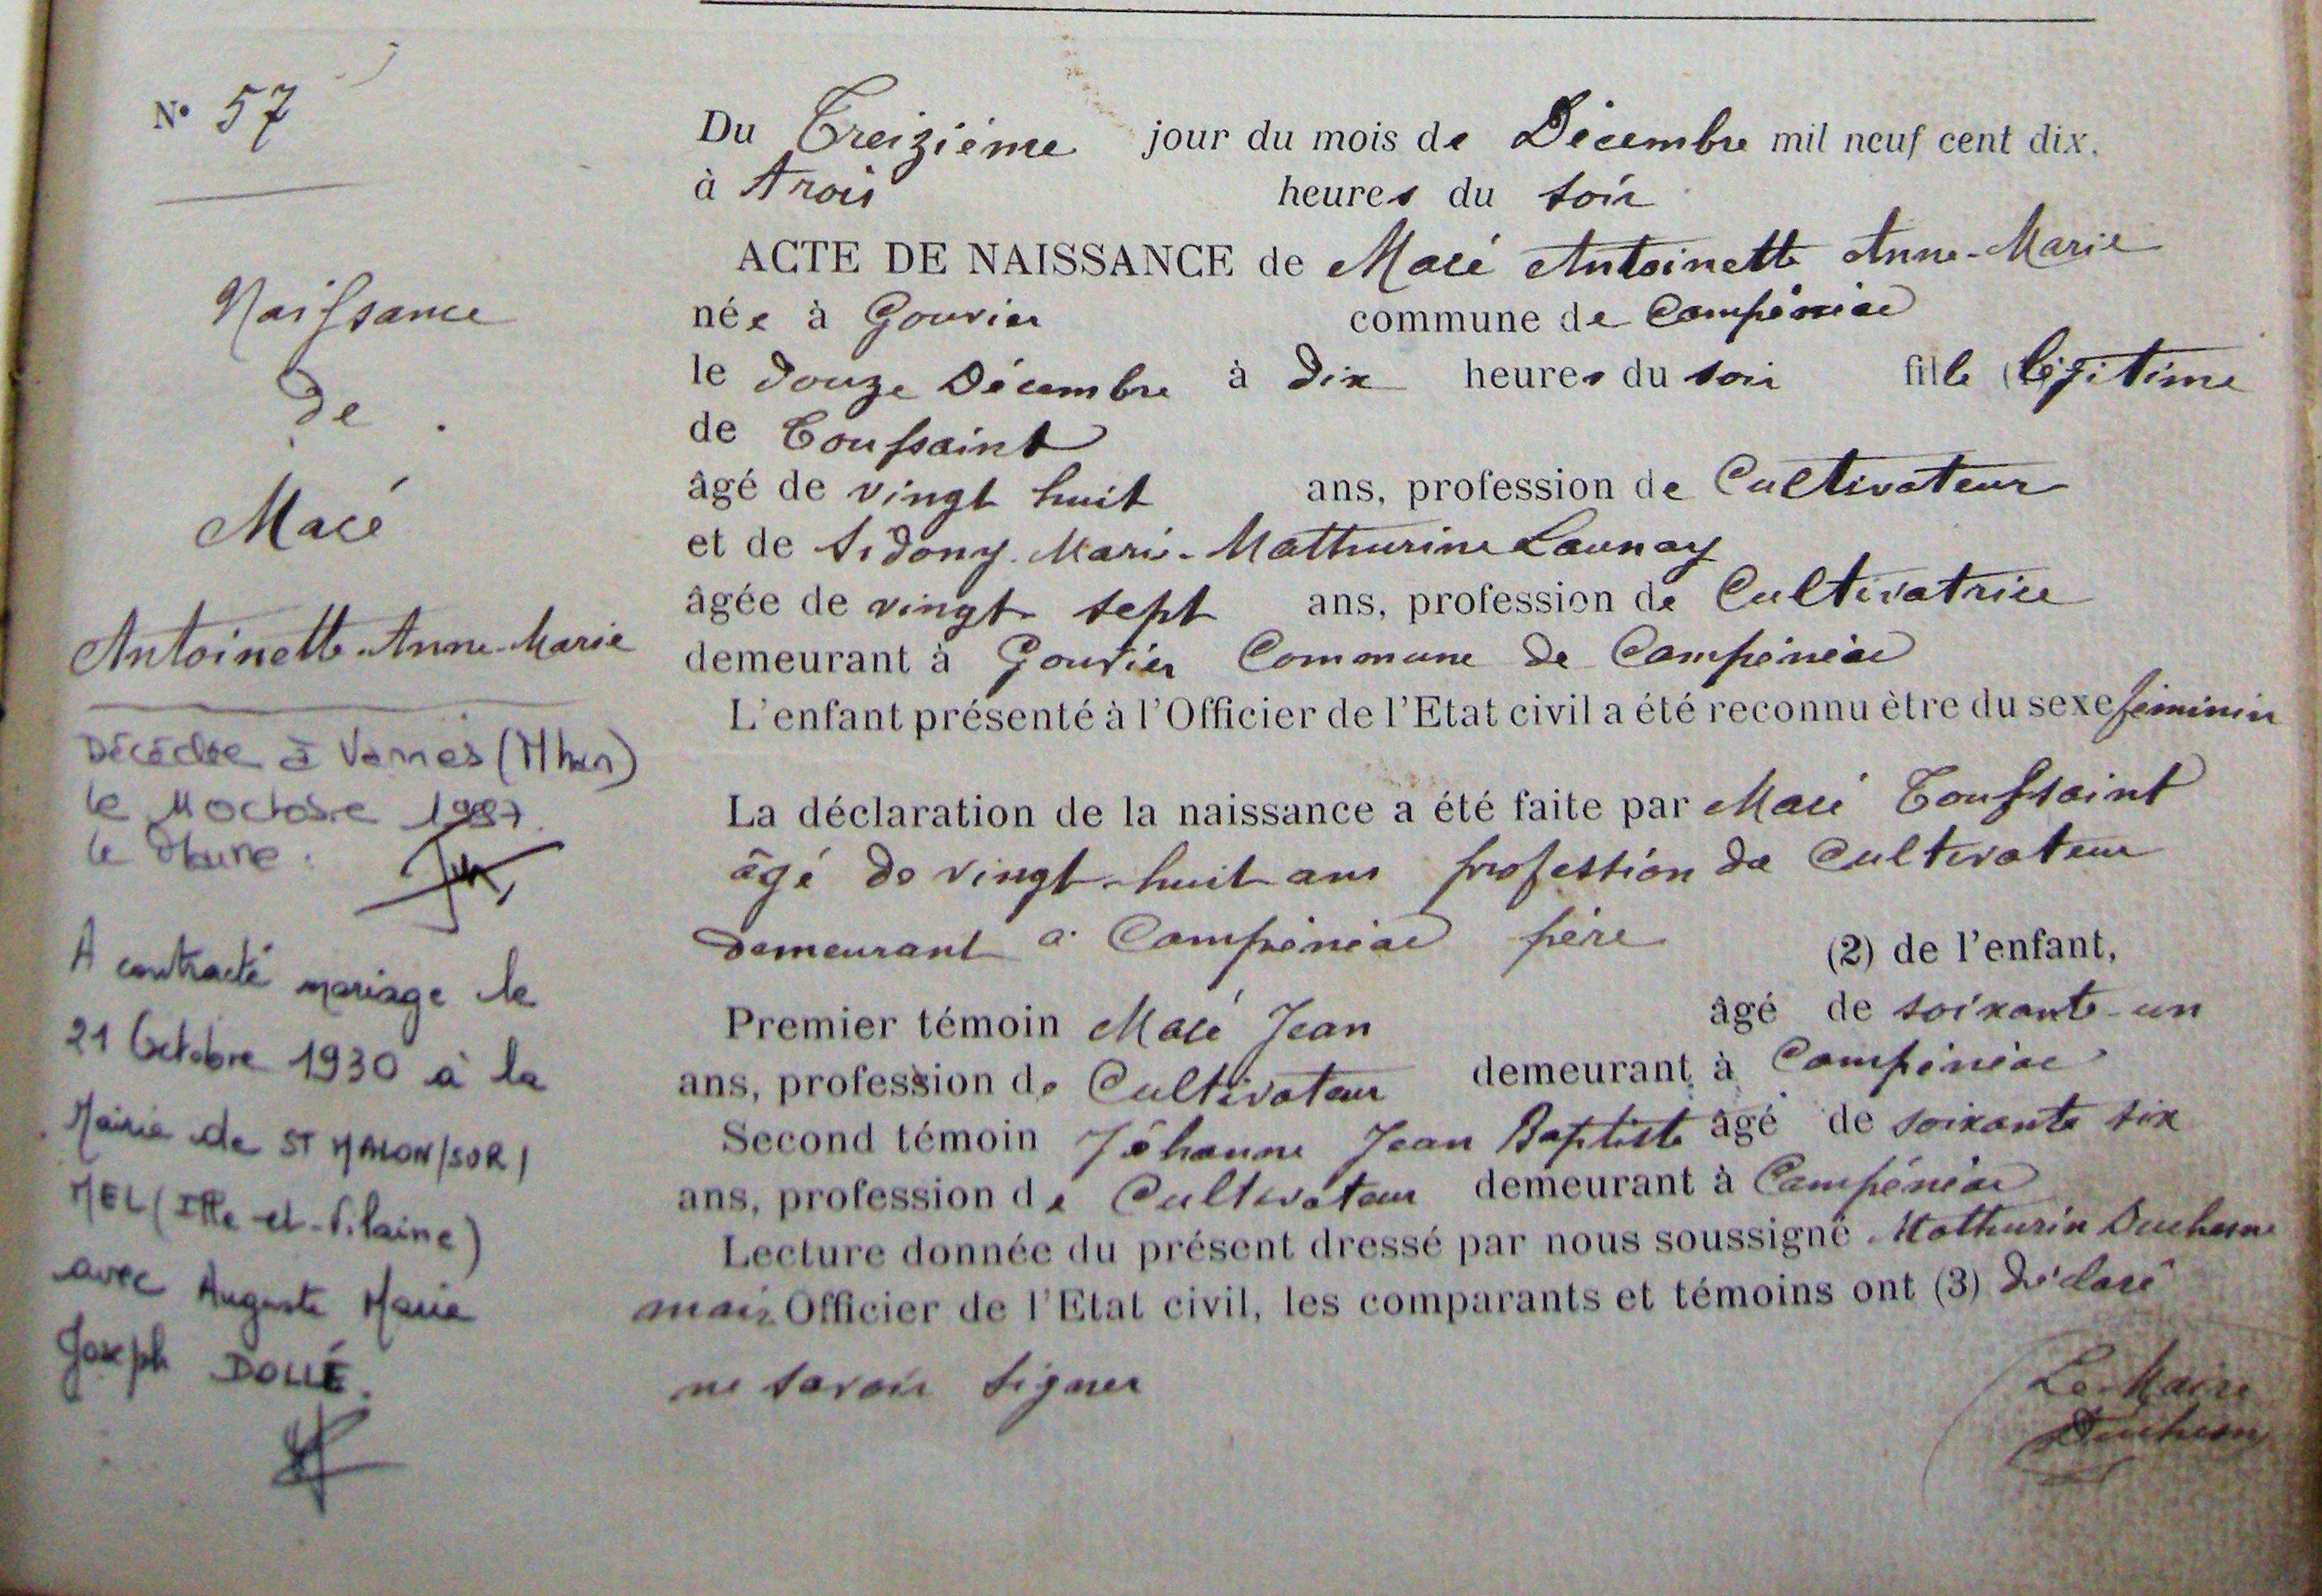 N° 57
Naissance
de
Macé
Antoinette Anne-Marie
Décédée à Vannes (Mhan)
le 11 octobre 1987.
le Maire.
A contracté mariage le
21 Octobre 1930 à la
Mairie de ST MALON/SUR/
MEL (Ille-et-Vilaine)
avec Auguste Marie
Joseph DOLLÉ.
Du Treizième jour du mois de Décembre mil neuf cent dix.
à trois heures du soir
ACTE DE NAISSANCE de Macé Antoinette Anne-Marie
née à Gouvier commune de Campénéac
le douze Décembre à dix heures du soir fille légitime
de Toussaint
âgé de vingt huit ans, profession de Cultivateur
et de Sidony Marie-Mathurine Launay
âgée de vingt sept ans, profession de Cultivatrice
demeurant à Gouvier Commune de Campénéac
L'enfant présenté à l'Officier de l'Etat civil a été reconnu être du sexe féminin
La déclaration de la naissance a été faite par Macé Toussaint
âgé de vingt-huit ans profession de Cultivateur
demeurant à Campénéac père (2) de l'enfant,
Premier témoin Macé Jean âgé de soixante-un
ans, profession de Cultivateur demeurant à Campénéac
Second témoin Jéhanne Jean Baptiste âgé de soixante six
ans, profession de Cultivateur demeurant à Campénéac
Lecture donnée du présent dressé par nous soussigné Mathurin Duchesne
maire Officier de l'Etat civil, les comparants et témoins ont (3) déclaré
ne savoir signer
Le Maire
Duchesne